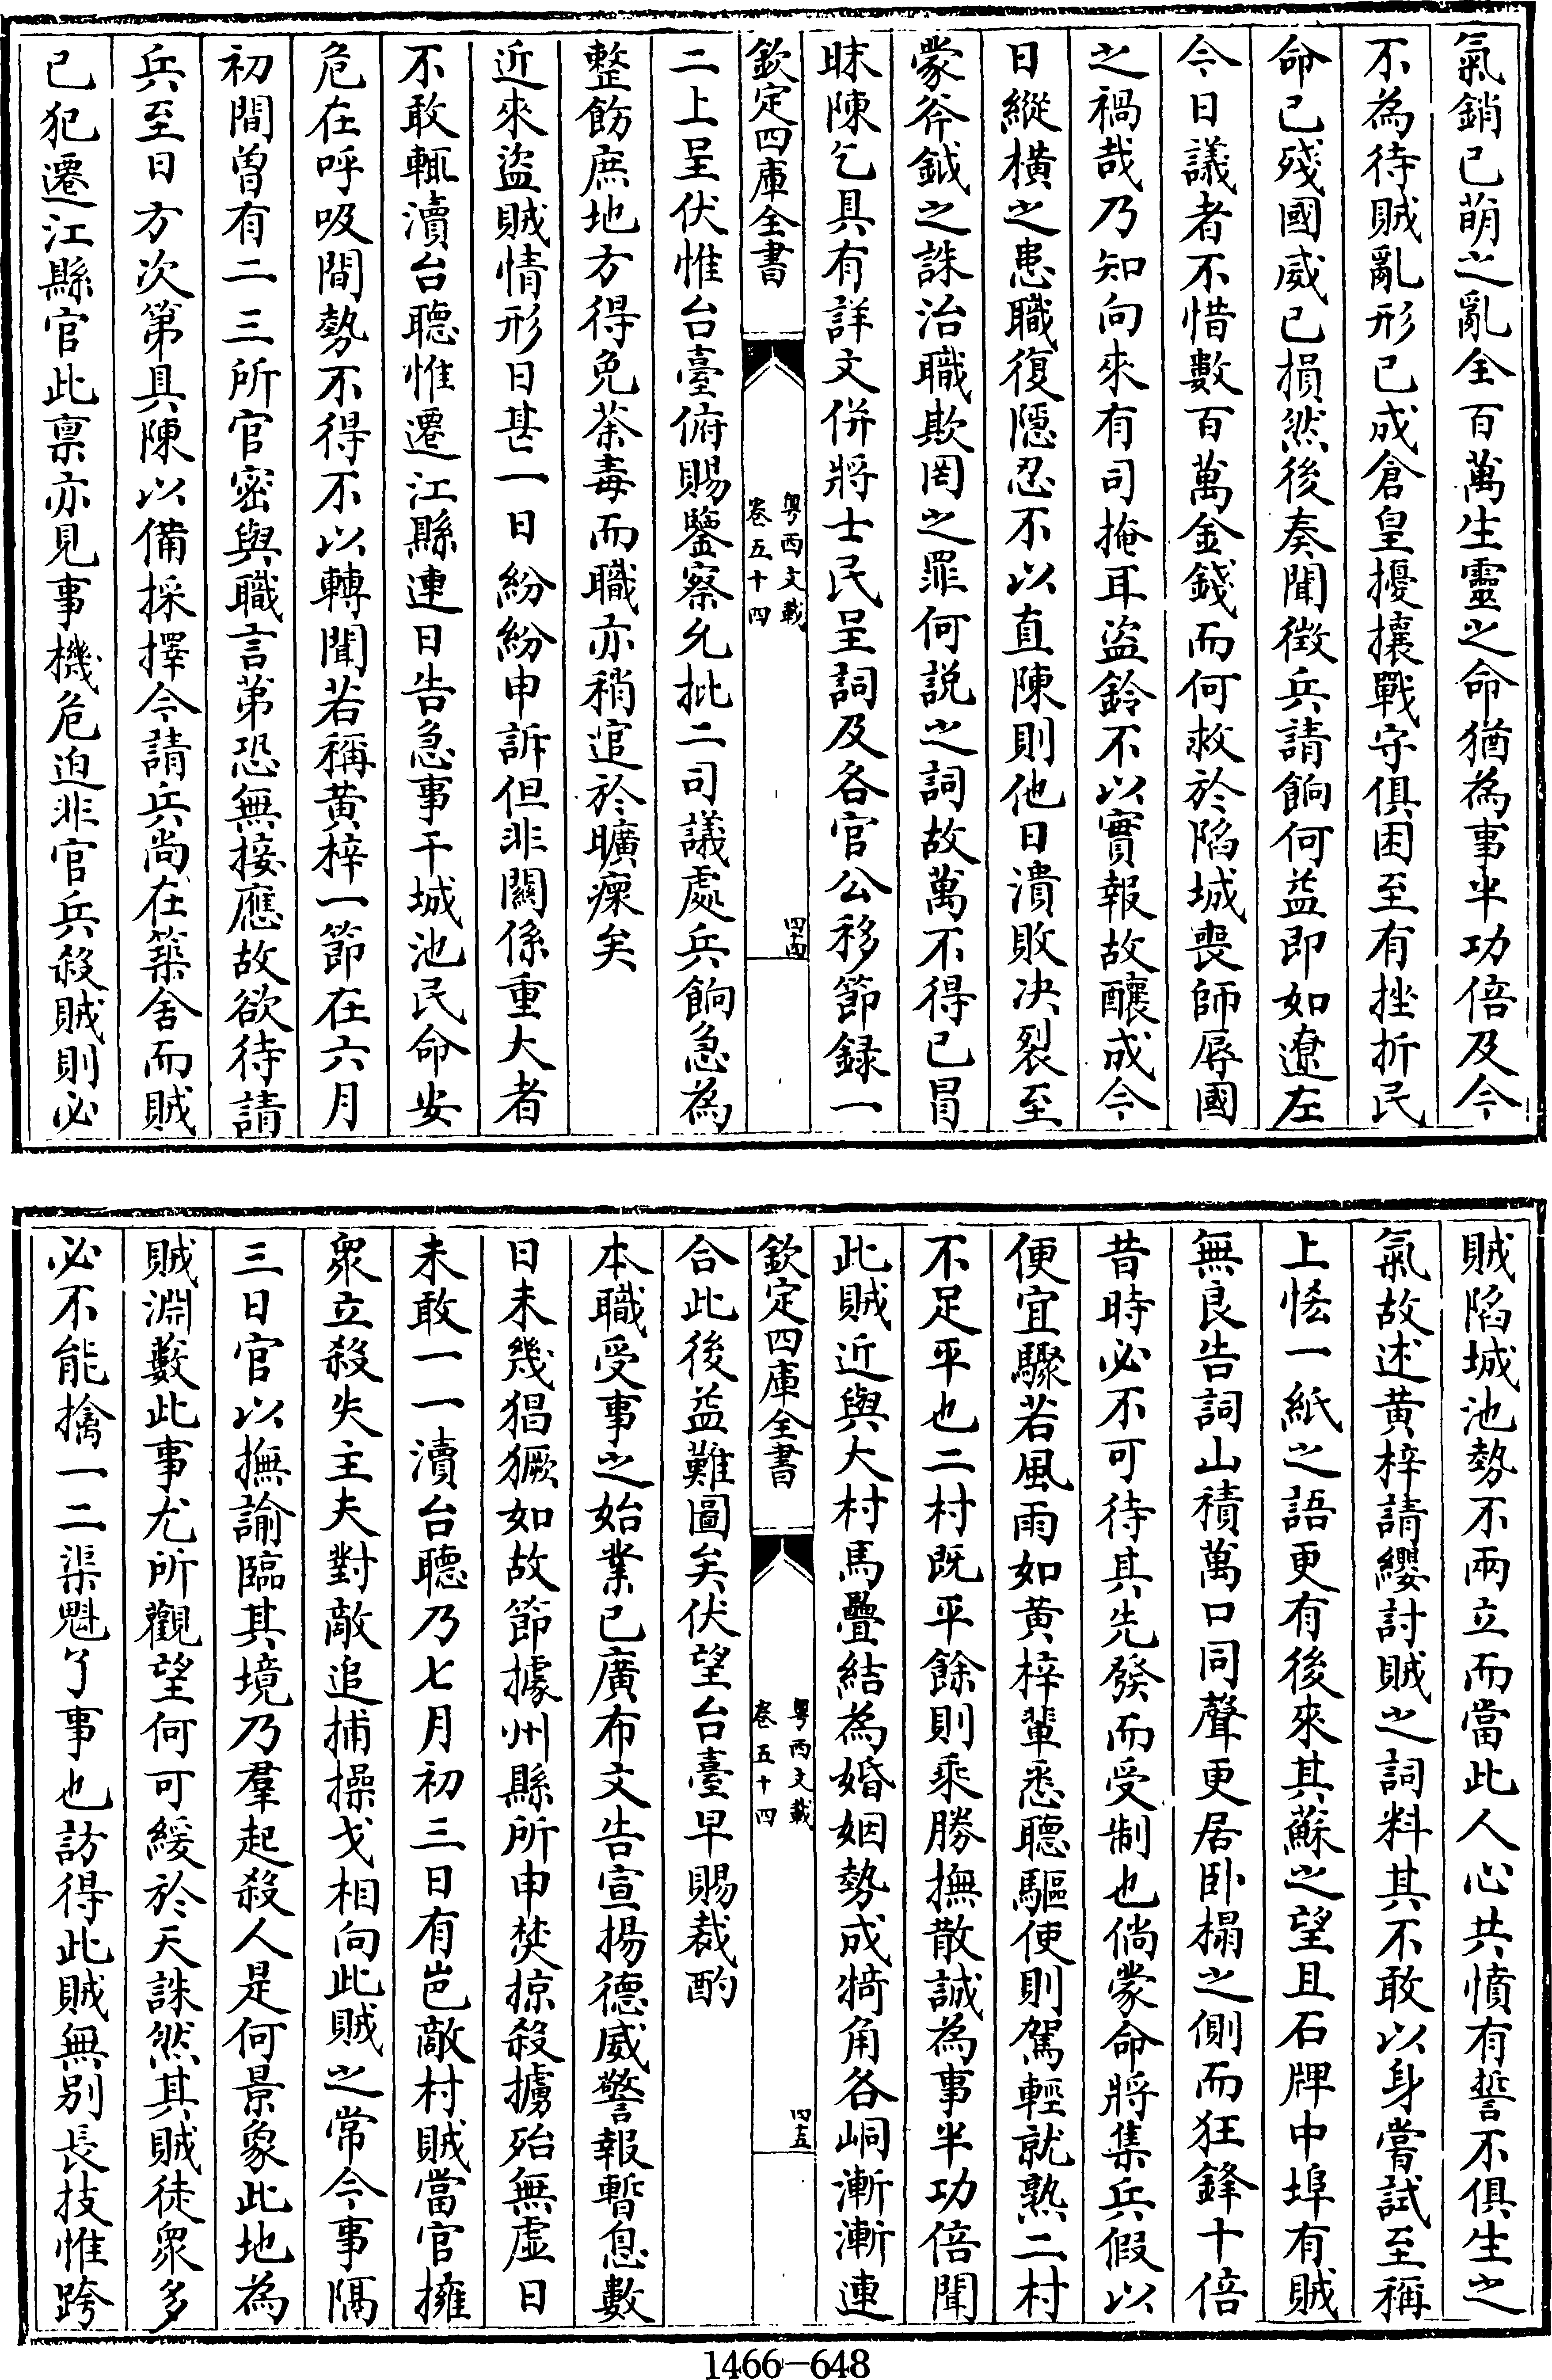 氣銷已萌之亂全百萬生靈之命猶為事半功倍及今
不為待賊亂形已成倉皇擾攘戰守俱困至有挫折民
命已殘國威已損然後奏聞徴兵請餉何益即如遼左
今日議者不惜數百萬金錢而何救於陷城喪師辱國
之禍哉乃知向來有司掩耳盜鈴不以實報故釀成今
日縱橫之患職復隱忍不以直陳則他日潰敗决裂至
蒙斧鉞之誅治職欺罔之罪何説之詞故萬不得已冒
昧陳乞具有詳文併將士民呈詞及各官公移節録一
欽定四庫全書
粤西文載
卷五十四
四十四
二上呈伏惟台臺俯賜鑒察允批二司議處兵餉急為
整飭庶地方得免荼毒而職亦稍逭於曠瘝矣
近來盜賊情形日甚一日紛紛申訴但非關係重大者
不敢輒瀆台聽惟遷江縣連日告急事干城池民命安
危在呼吸間勢不得不以轉聞若稱黄梓一節在六月
初間曽有二三所官密與職言第恐無接應故欲待請
兵至日方次第具陳以備採擇今請兵尚在築舍而賊
已犯遷江縣官此禀亦見事機危迫非官兵殺賊則必
賊陷城池勢不兩立而當此人心共憤有誓不俱生之
氣故述黄梓請纓討賊之詞料其不敢以身嘗試至稱
上恡一紙之語更有後來其蘇之望且石牌中埠有賊
無良告詞山積萬口同聲更居卧榻之側而狂鋒十倍
昔時必不可待其先發而受制也倘蒙命將集兵假以
便宜驟若風雨如黄梓輩悉聽驅使則駕輕就熟二村
不足平也二村既平餘則乘勝撫散誠為事半功倍聞
此賊近與大村馬疊結為婚姻勢成犄角各峒漸漸連
欽定四庫全書
粤西文載
卷五十四
四十五
合此後益難圖矣伏望台臺早賜裁酌
本職受事之始業已廣布文告宣揚德威警報暫息數
日未幾猖獗如故節據州縣所申焚掠殺擄殆無虛日
未敢一一瀆台聽乃七月初三日有岜敵村賊當官擁
衆立殺失主夫對敵追捕操戈相向此賊之常今事隔
三日官以撫諭臨其境乃羣起殺人是何景象此地為
賊淵藪此事尤所觀望何可緩於天誅然其賊徒衆多
必不能擒一二渠魁了事也訪得此賊無别長技惟跨
1466-648